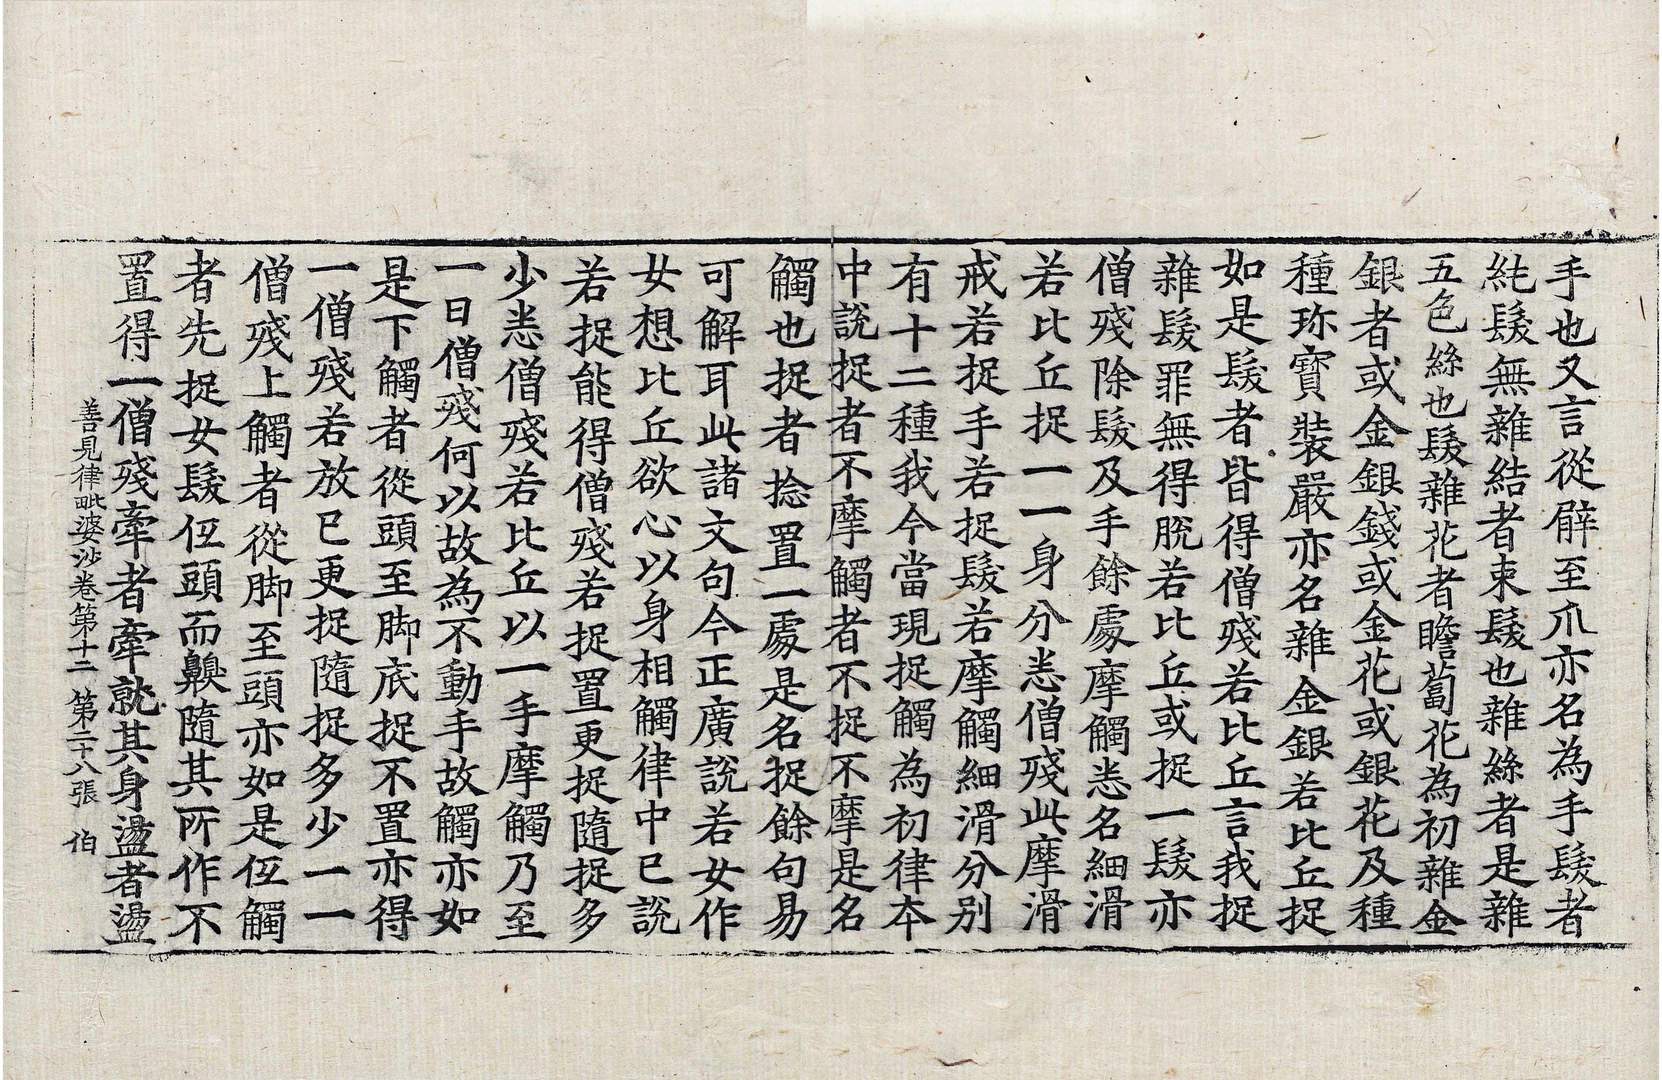 手也又言從臂至爪亦名為手髮者
純髮無雜結者束髮也雜絲者是雜
五色絲也髮雜花者瞻蔔花為初雜金
銀者或金銀錢或金花或銀花及種
種珎寶裝嚴亦名雜金銀若比丘捉
如是髮者皆得僧殘若比丘言我捉
雜髮罪無得脫若比丘或捉一髮亦
僧殘除髮及手餘處摩觸悉名細滑
若比丘捉一一身分悉僧殘此摩滑
戒若捉手若捉髮若摩觸細滑分別
有十二種我今當現捉觸為初律本
中說捉者不摩觸者不捉不摩是名
觸也捉者捻置一處是名捉餘句易
可解耳此諸文句今正廣說若女作
女想比丘欲心以身相觸律中已說
若捉能得僧殘若捉置更捉隨捉多
少悉僧殘若比丘以一手摩觸乃至
一日僧殘何以故為不動手故觸亦如
是下觸者從頭至脚底捉不置亦得
一僧殘若放已更捉隨捉多少一一
僧殘上觸者從脚至頭亦如是伍觸
者先捉女髮伍頭而䶑隨其所作不
置得一僧殘牽者牽就其身盪者盪
善見律毗婆沙卷第十二　第二十八張　伯